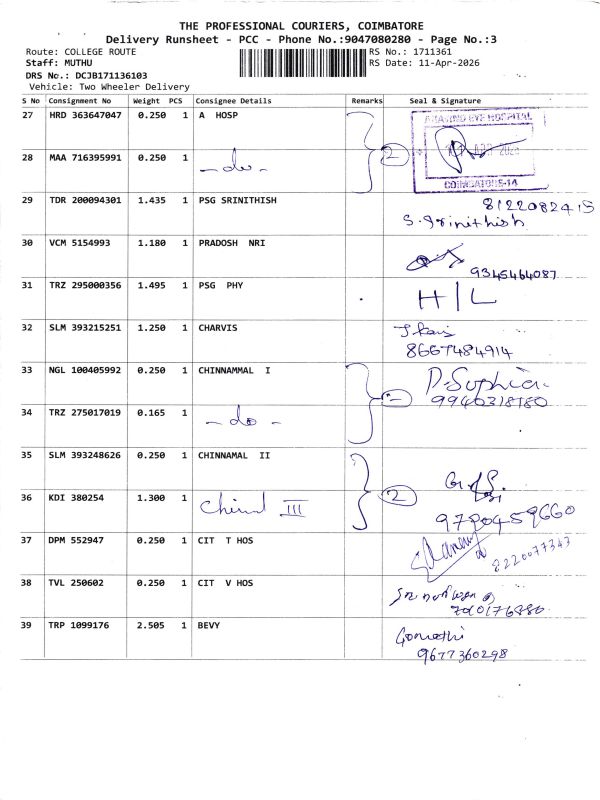 THE PROFESSIONAL COURIERS, COIMBATORE
Delivery Runsheet - PCC - Phone No.:9047080280 - Page No.:3
Route: COLLEGE ROUTE
RS No.: 1711361
Staff: MUTHU
RS Date: 11-Apr-2026
DRS No.: DCJB171136103
Vehicle: Two Wheeler Delivery
S No Consignment No Weight PCS Consignee Details Remarks Seal & Signature
27 HRD 363647047 0.250 1 A HOSP
ARAVIND EYE HOSPITAL
28 MAA 716395991 0.250 1 - do - 2
COIMBATORE-14
29 TDR 200094301 1.435 1 PSG SRINITHISH
S. Srinithish
30 VCM 5154993 1.180 1 PRADOSH NRI
9345464087
31 TRZ 295000356 1.495 1 PSG PHY H/L
32 SLM 393215251 1.250 1 CHARVIS
8667484914
33 NGL 100405992 0.250 1 CHINNAMMAL I D. Sophia.
9940318780
34 TRZ 275017019 0.165 1 - do -
35 SLM 393248626 0.250 1 CHINNAMAL II
36 KDI 380254 1.300 1 Chinnl III 2
37 DPM 552947 0.250 1 CIT T HOS
8220077343
38 TVL 250602 0.250 1 CIT V HOS
39 TRP 1099176 2.505 1 BEVY Gomathi
9677360298